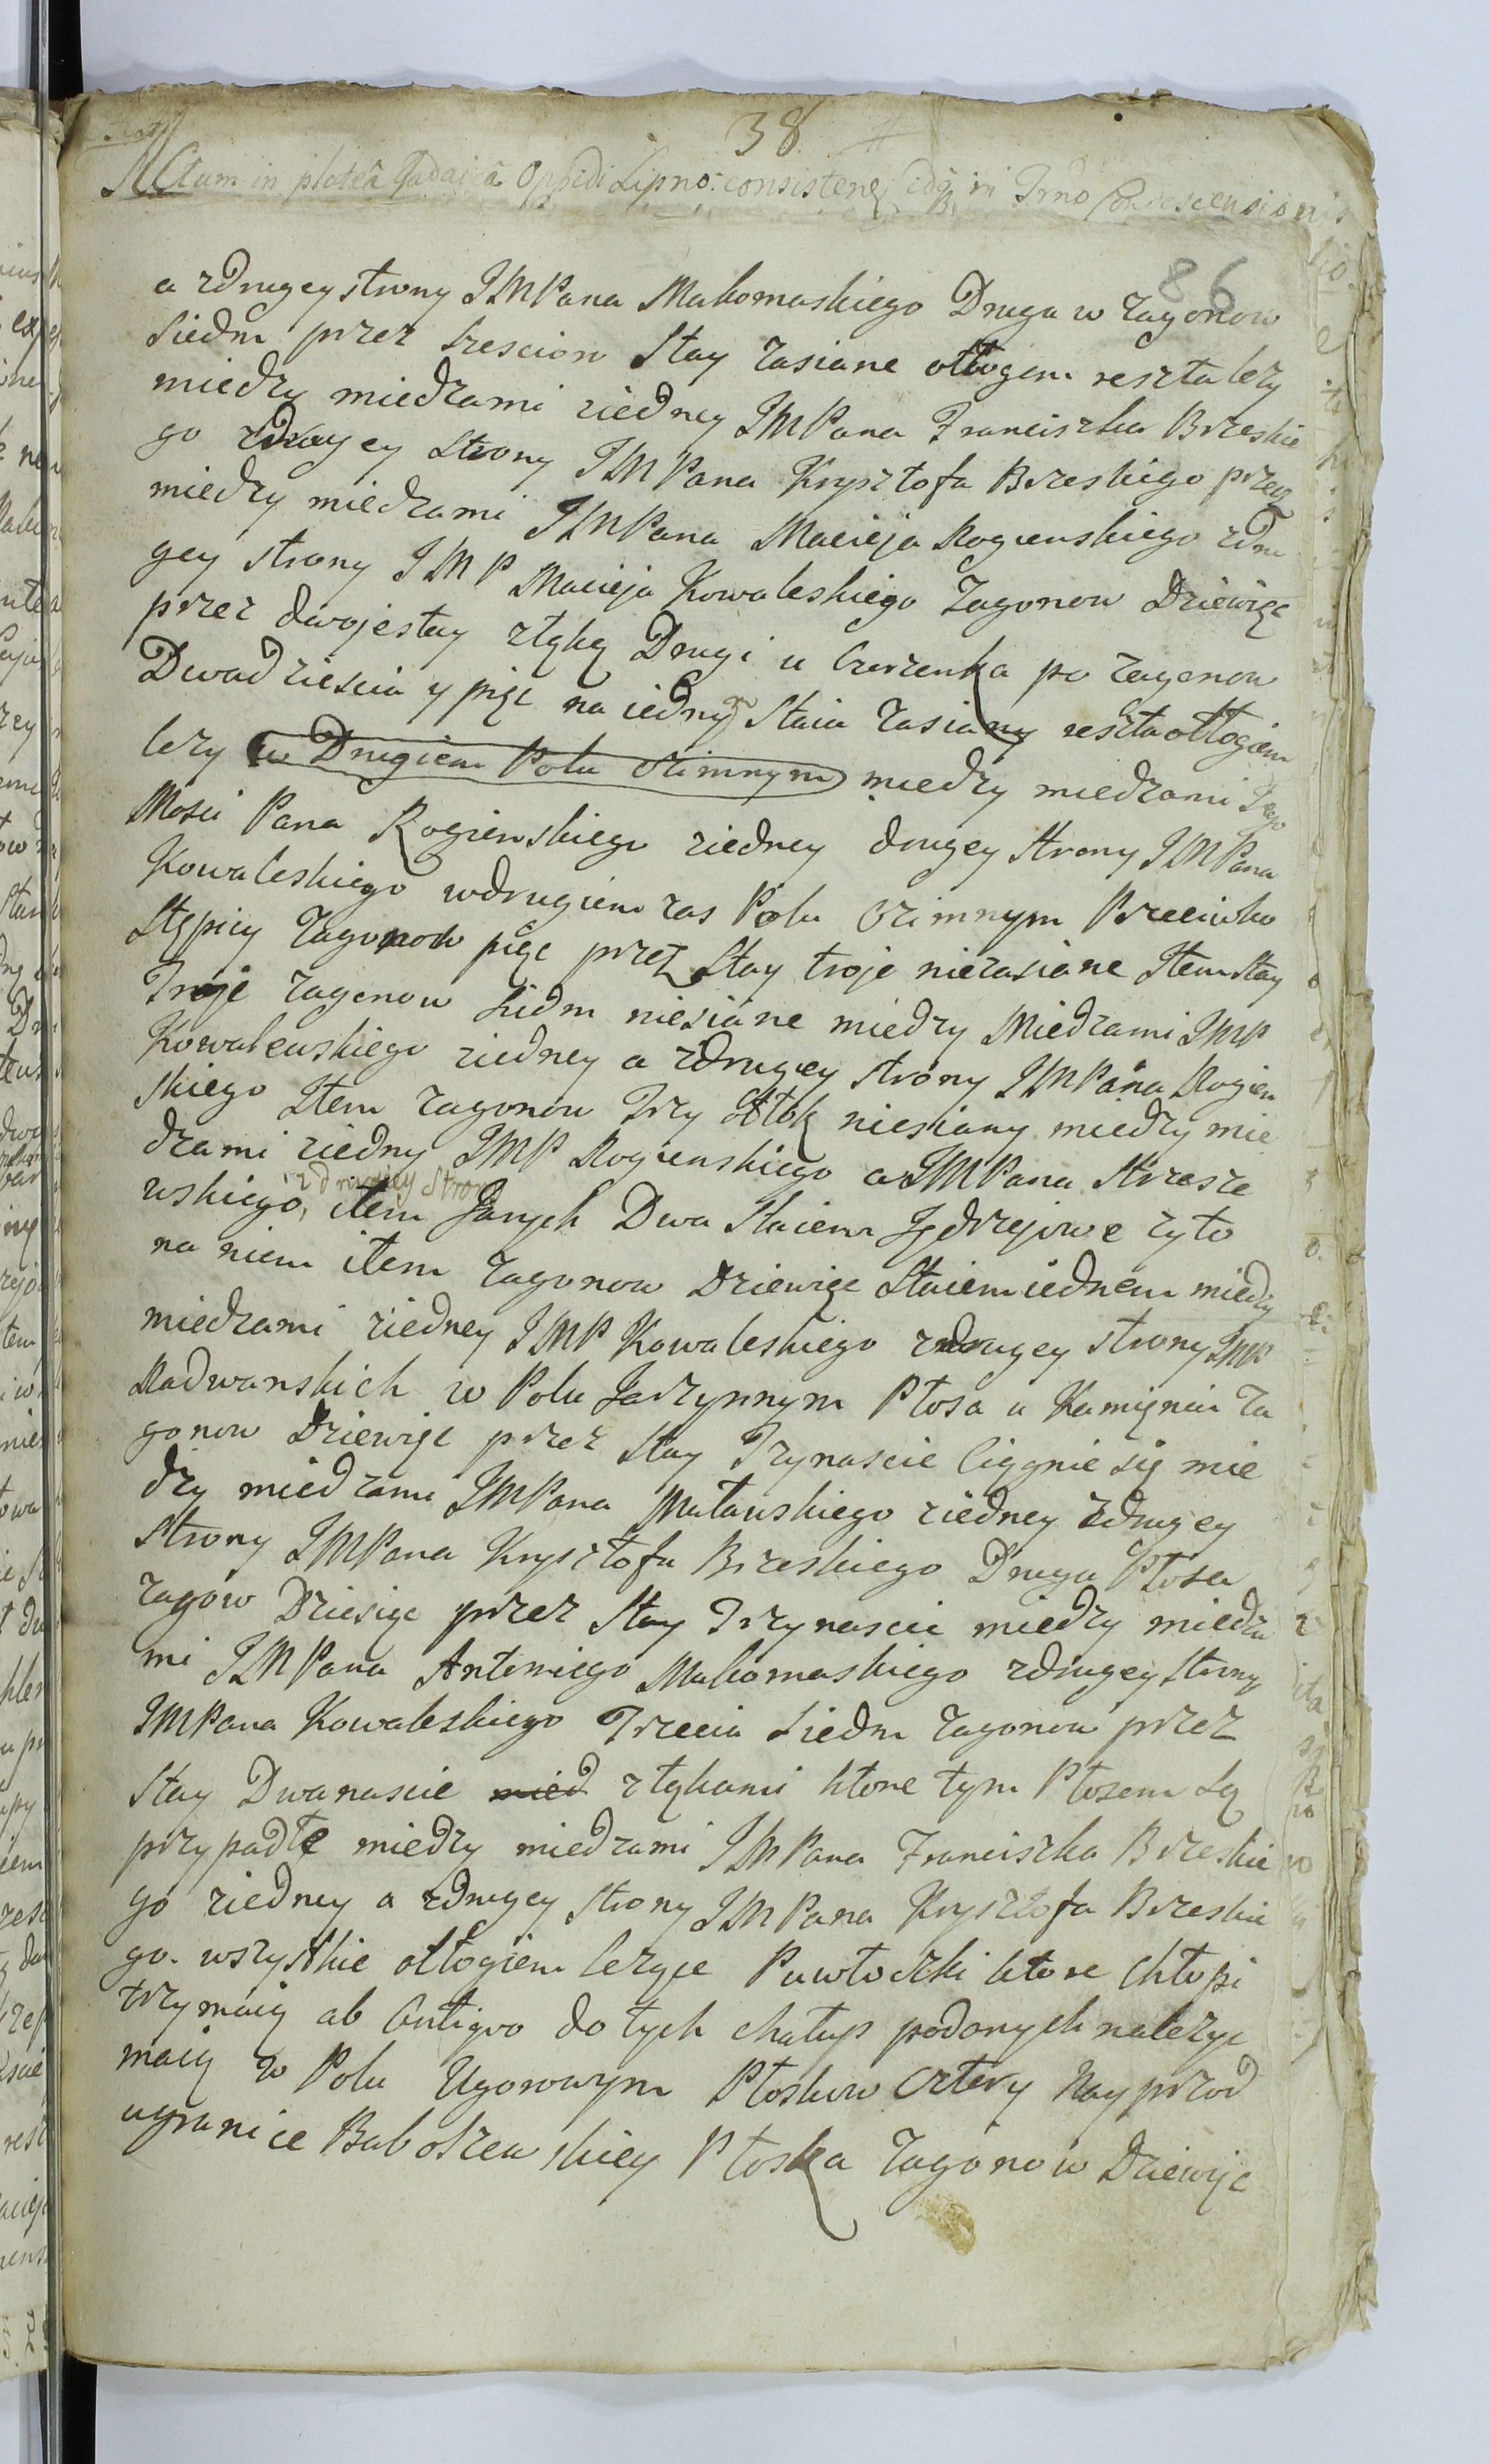 38.
Actum in plateâ Judaicâ Oppidi Lipno: consistenę in Trno Condescensionis
86
a zdrugey strony JMPana Makomaskiego Druga w zagonow
Siedm przez szescion Stay zasiane ołłogem reszta lezy
miedzy miedzami ziedney JMPana Franciszka Brzeskie
go zdrugey Strony JMPana Krysztofa Brzeskiego
miedzy miedzami JMPana Macieja Rogienskiego zdru
gey strony JMP Macieja Kowaleskiego Zagonow Dziewięc
przez dwoje stay złąką Drugi u Czerzenka po zagonow
Dwadziescia y pięc na iedny Staia zasiany reszta ołłogiem
lezy w Drugiem Polu Ozimnym miedzy miedzami Jego
Mosci Pana Rogienskiego ziedney drugey Strony JMPana
Kowaleskiego wdrugiem zas Polu Ozimnym Przeciwko
Stępicy Zagonow pięc przez Stay troje niezasiane Item Stay
Troje zagonow Siedm niesiane miedzy Miedzami JMP
Kowalewskiego ziedney a zdrugey strony JMPana Rogien
skiego Item zagonow Trzy Ołłok niesiany miedzy mie
dzami ziedny JMP Rogienskiego a JMPana Strzesze
zdrugiey Strony
wskiego, item Janych Dwa Staiem Jędrzejowe zyto
na niem item zagonow Dziewięc Staiem iednem miedzy
miedzami ziedney JMP Kowaleskiego zdrugey strony JMP
Radwanskich w Polu Jarzynnym Płosa u Kamięnia Za
gonow Dziewięc przez Stay Trzynascie Ciągnie się mie
dzy miedzami JMPana Matawskiego ziedney zdrugey
Strony JMPana Krysztofa Brzeskiego Druga Płosa
zagow Dziesięc przez Stay Trzynascie miedzy miedza
mi JMPana Antoniego Makomaskiego zdrugey Strony
JMPana Kowaleskiego Trzecia Siedm zagonow przez
Stay Dwanascie mied złąkami ktore tym Płosem Są
przypadłe miedzy miedzami JMPana Franciszka Brzeskie
go ziedney a zdrugey Strony JMPana Krysztofa Brzeskie
go. wszystkie ołłogiem lezące Pawłoczki ktore Chłopi
trzymaią ab Antiqvo do tych chałup podanych nalezyc
maią w Polu Ugorowym Płoskow Cztery Nayprzod
ugranice Baboszewskiey Płoska zagonow Dziewięc